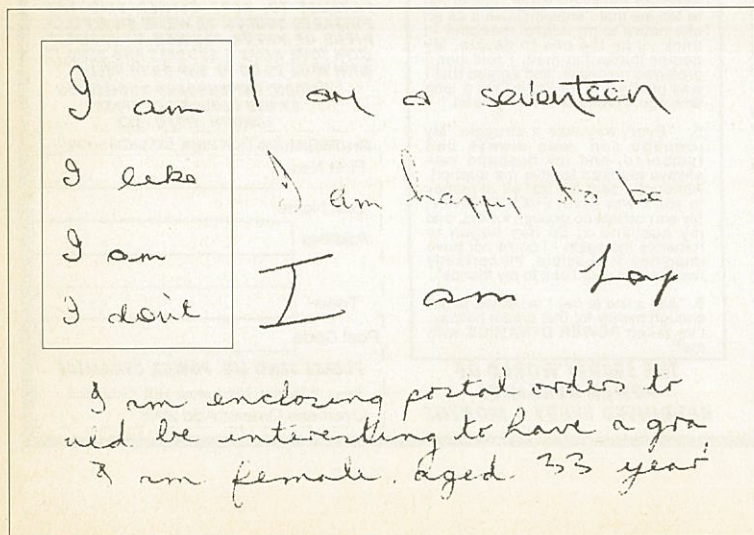 I am
I like
I am
I don't
I am a seventeen
I am happy to be
I am
I am enclosing postal orders to
uld be interesting to have a gra
I am female. aged 33 year